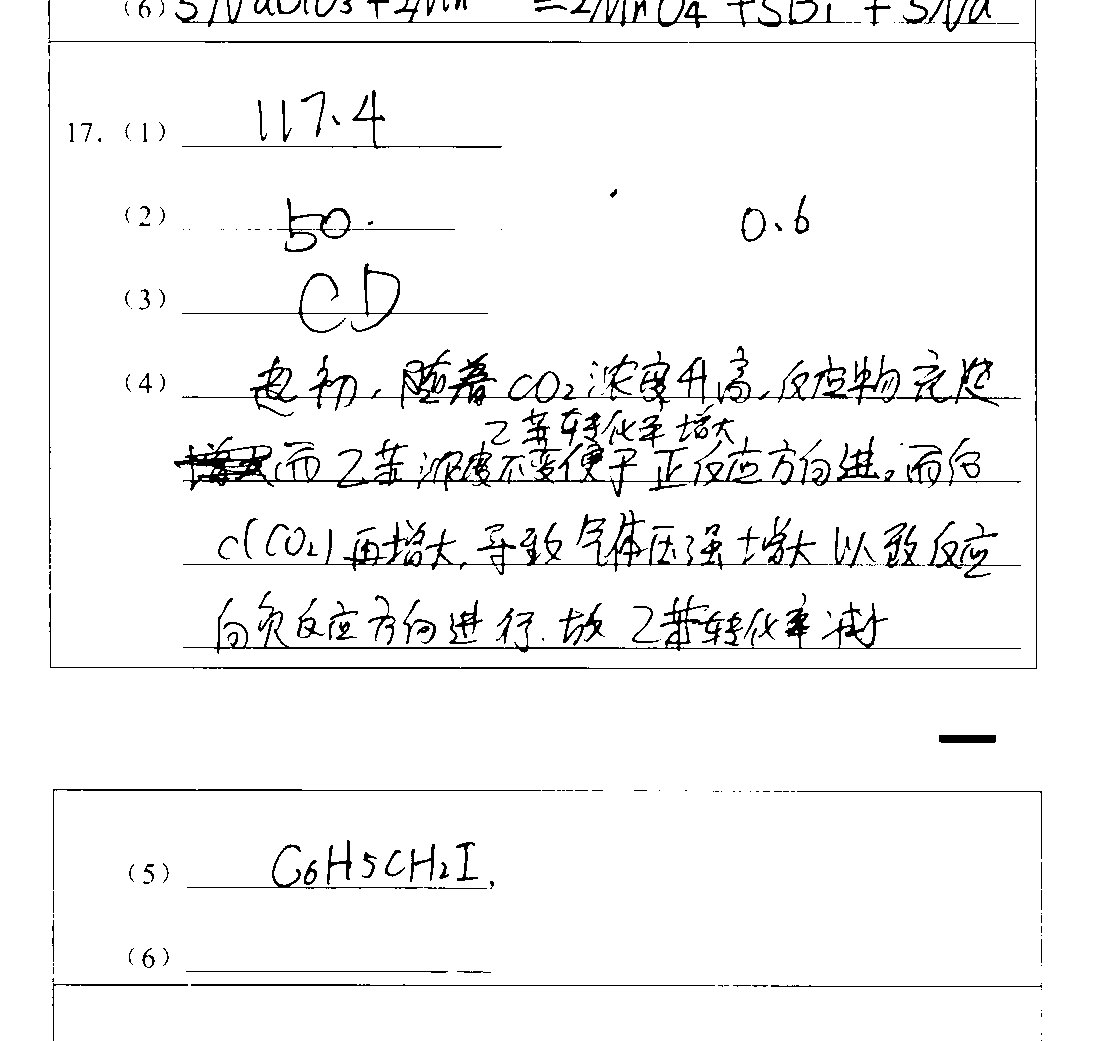 (6) 5NaBiO3+2Mn =2MnO4 +5Bi + 5Na
17. (1) 117.4
(2) 50. 0.6
(3) CD
(4) 起初,随着CO2浓度升高,反应物充足
乙苯转化率增大
而乙苯浓度不变便于正反应方向进。而后
c(CO2)再增大,导致气体压强增大以致反应
向负反应方向进行.故乙苯转化率减小
(5) C6H5CH2I,
(6)